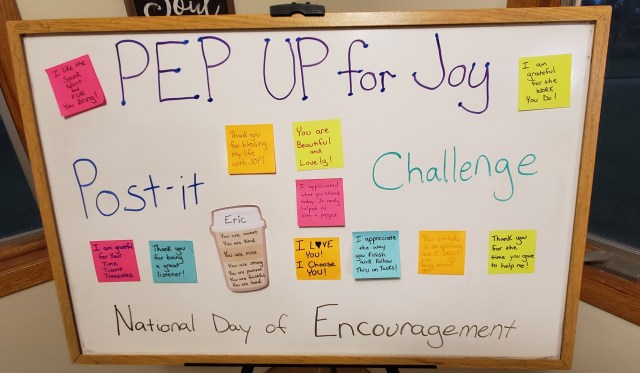 Soul
PEP UP for Joy
I like the
Spunk
Spirit
and
FUN
You Bring!
I am
grateful
for the
WORK
You Do!
Thank you
for blessing
my life
with JOY!
You are
Beautiful
and
Lovely!
Post-it
Challenge
I appreciated
what you shared
today. It really
helped me
I am grateful
for Your
Time
Talent
Treasures
Thank you
for being
a great
listener!
Eric
You are
You are kind.
You are mine
You are strong
You are
You are faithful
You are loved
I L♥VE
You!
I Choose
You!
I appreciate
the way
you Finish
and Follow
Thru on Tasks!
Thank you
for the
time you gave
to help me!
National Day of Encouragement